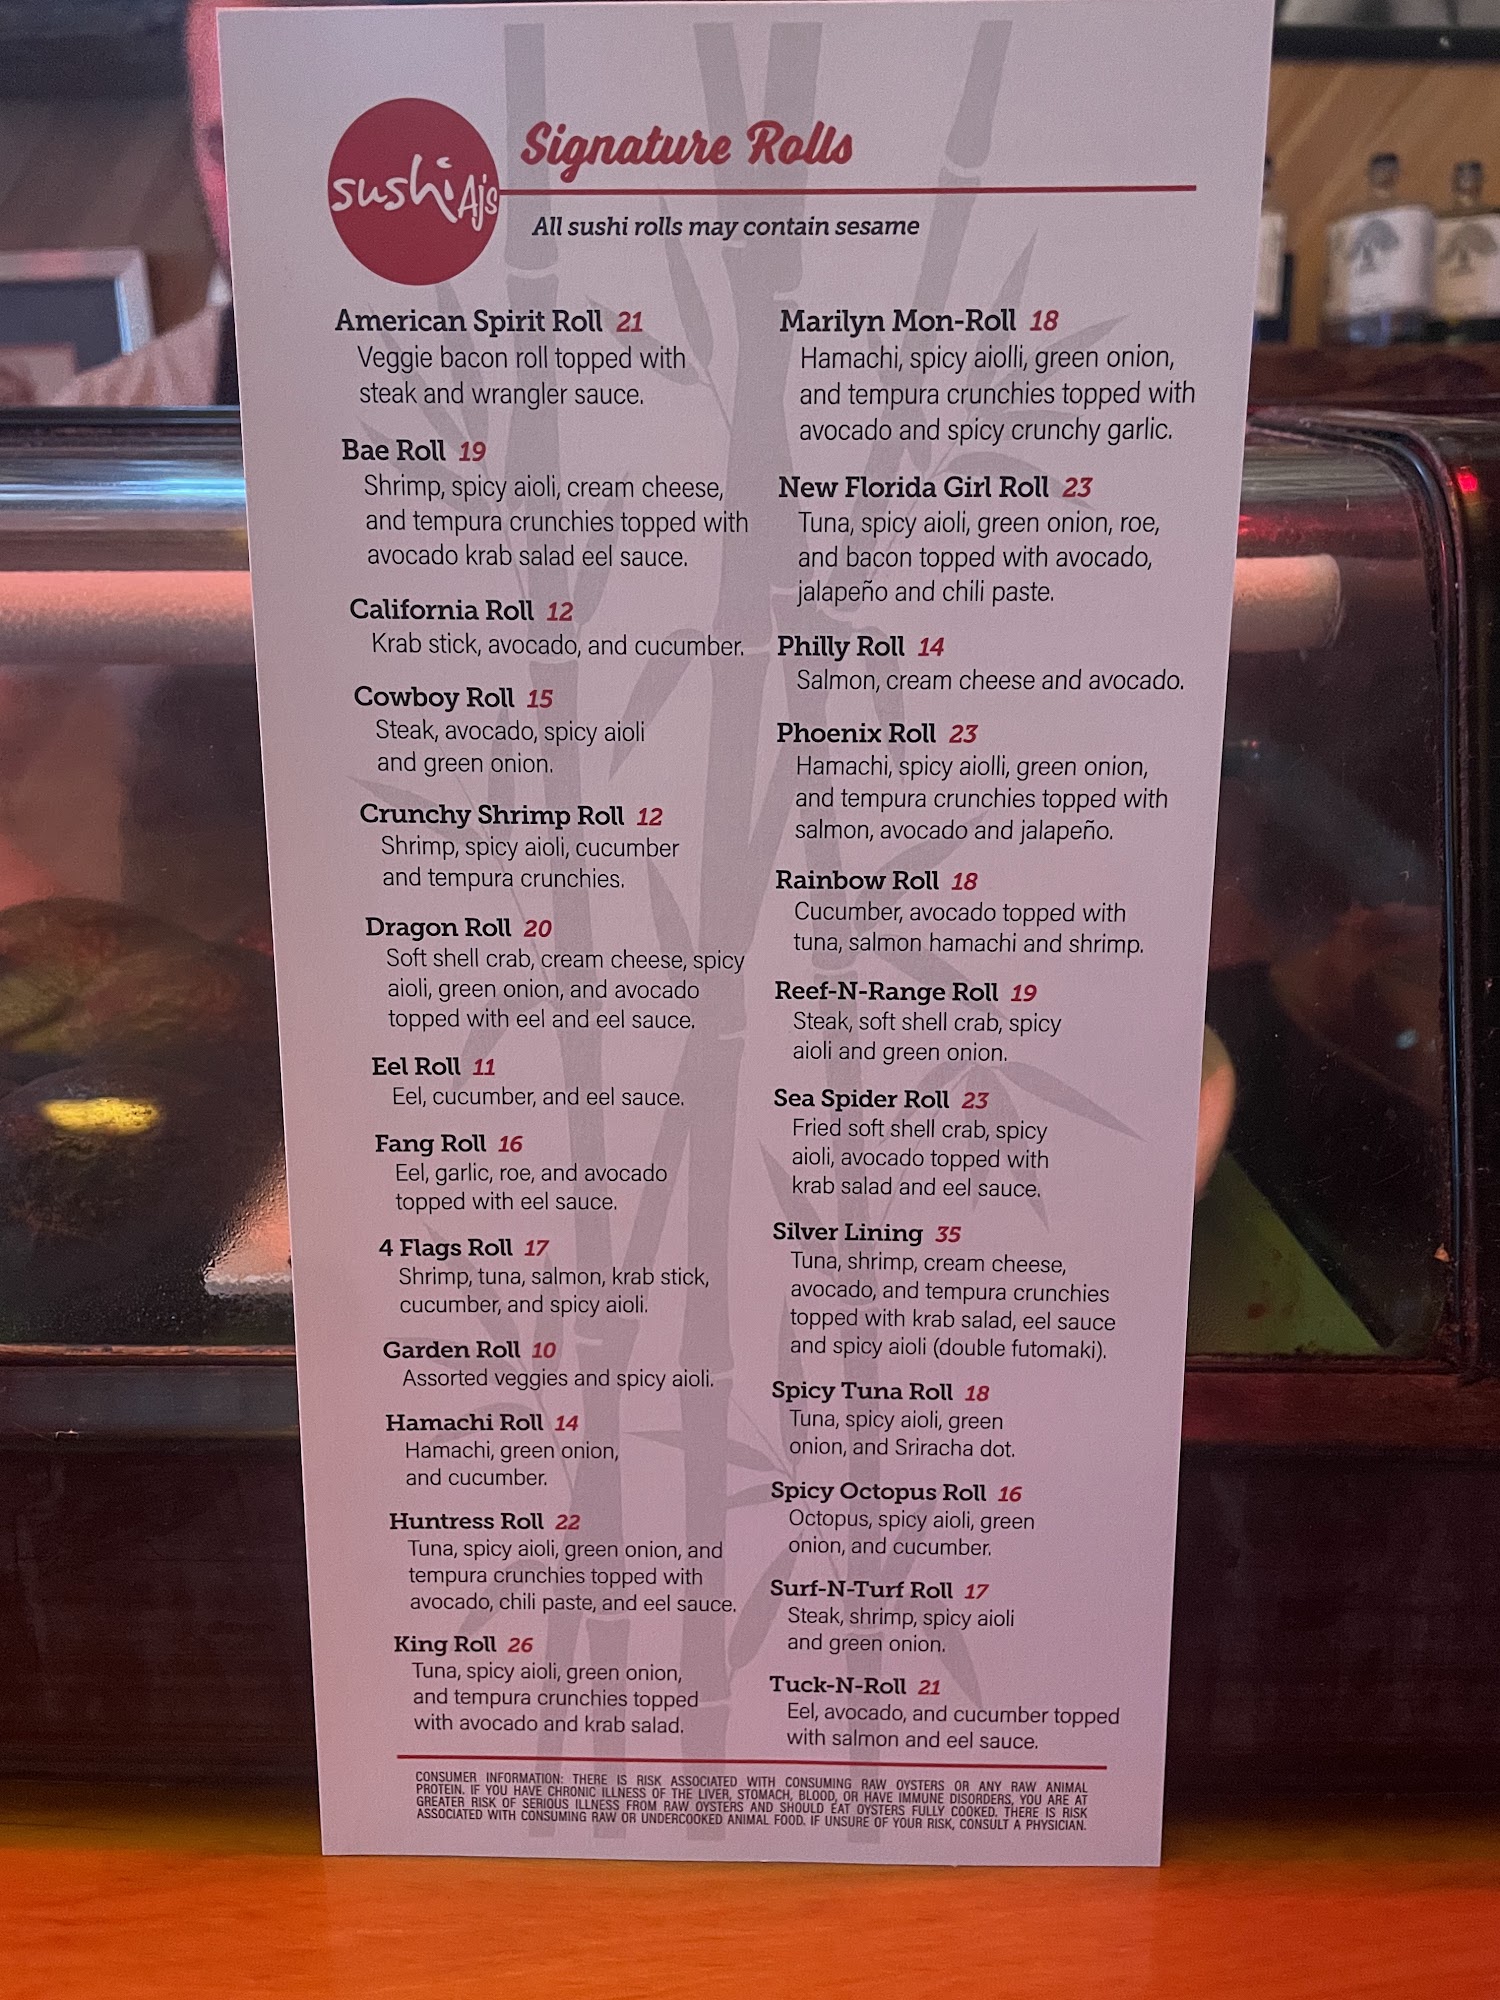 sushi Aj's
Signature Rolls
All sushi rolls may contain sesame
American Spirit Roll 21
Veggie bacon roll topped with
steak and wrangler sauce.
Bae Roll 19
Shrimp, spicy aioli, cream cheese,
and tempura crunchies topped with
avocado krab salad eel sauce.
California Roll 12
Krab stick, avocado, and cucumber.
Cowboy Roll 15
Steak, avocado, spicy aioli
and green onion.
Crunchy Shrimp Roll 12
Shrimp, spicy aioli, cucumber
and tempura crunchies.
Dragon Roll 20
Soft shell crab, cream cheese, spicy
aioli, green onion, and avocado
topped with eel and eel sauce.
Eel Roll 11
Eel, cucumber, and eel sauce.
Fang Roll 16
Eel, garlic, roe, and avocado
topped with eel sauce.
4 Flags Roll 17
Shrimp, tuna, salmon, krab stick,
cucumber, and spicy aioli.
Garden Roll 10
Assorted veggies and spicy aioli.
Hamachi Roll 14
Hamachi, green onion,
and cucumber.
Huntress Roll 22
Tuna, spicy aioli, green onion, and
tempura crunchies topped with
avocado, chili paste, and eel sauce.
King Roll 26
Tuna, spicy aioli, green onion,
and tempura crunchies topped
with avocado and krab salad.
Marilyn Mon-Roll 18
Hamachi, spicy aiolli, green onion,
and tempura crunchies topped with
avocado and spicy crunchy garlic.
New Florida Girl Roll 23
Tuna, spicy aioli, green onion, roe,
and bacon topped with avocado,
jalapeño and chili paste.
Philly Roll 14
Salmon, cream cheese and avocado.
Phoenix Roll 23
Hamachi, spicy aiolli, green onion,
and tempura crunchies topped with
salmon, avocado and jalapeño.
Rainbow Roll 18
Cucumber, avocado topped with
tuna, salmon hamachi and shrimp.
Reef-N-Range Roll 19
Steak, soft shell crab, spicy
aioli and green onion.
Sea Spider Roll 23
Fried soft shell crab, spicy
aioli, avocado topped with
krab salad and eel sauce.
Silver Lining 35
Tuna, shrimp, cream cheese,
avocado, and tempura crunchies
topped with krab salad, eel sauce
and spicy aioli (double futomaki).
Spicy Tuna Roll 18
Tuna, spicy aioli, green
onion, and Sriracha dot.
Spicy Octopus Roll 16
Octopus, spicy aioli, green
onion, and cucumber.
Surf-N-Turf Roll 17
Steak, shrimp, spicy aioli
and green onion.
Tuck-N-Roll 21
Eel, avocado, and cucumber topped
with salmon and eel sauce.
CONSUMER INFORMATION: THERE IS RISK ASSOCIATED WITH CONSUMING RAW OYSTERS OR ANY RAW ANIMAL
PROTEIN. IF YOU HAVE CHRONIC ILLNESS OF THE LIVER, STOMACH, BLOOD, OR HAVE IMMUNE DISORDERS, YOU ARE AT
GREATER RISK OF SERIOUS ILLNESS FROM RAW OYSTERS AND SHOULD EAT OYSTERS FULLY COOKED. THERE IS RISK
ASSOCIATED WITH CONSUMING RAW OR UNDERCOOKED ANIMAL FOOD. IF UNSURE OF YOUR RISK, CONSULT A PHYSICIAN.